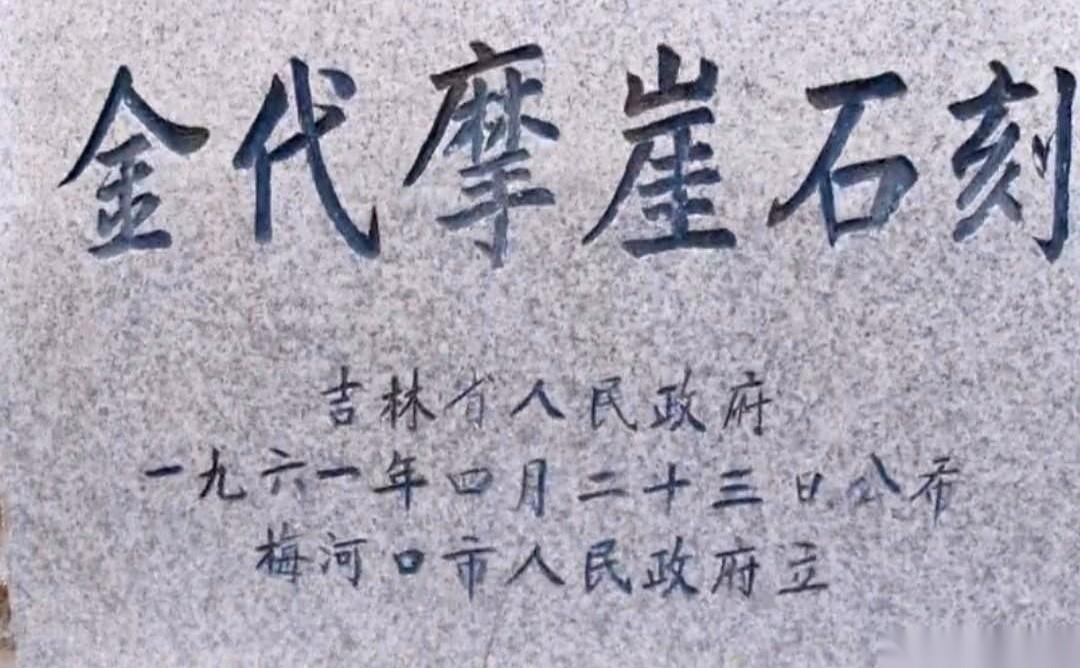 金代摩崖石刻
吉林省人民政府
一九六一年四月二十三日公布
梅河口市人民政府立